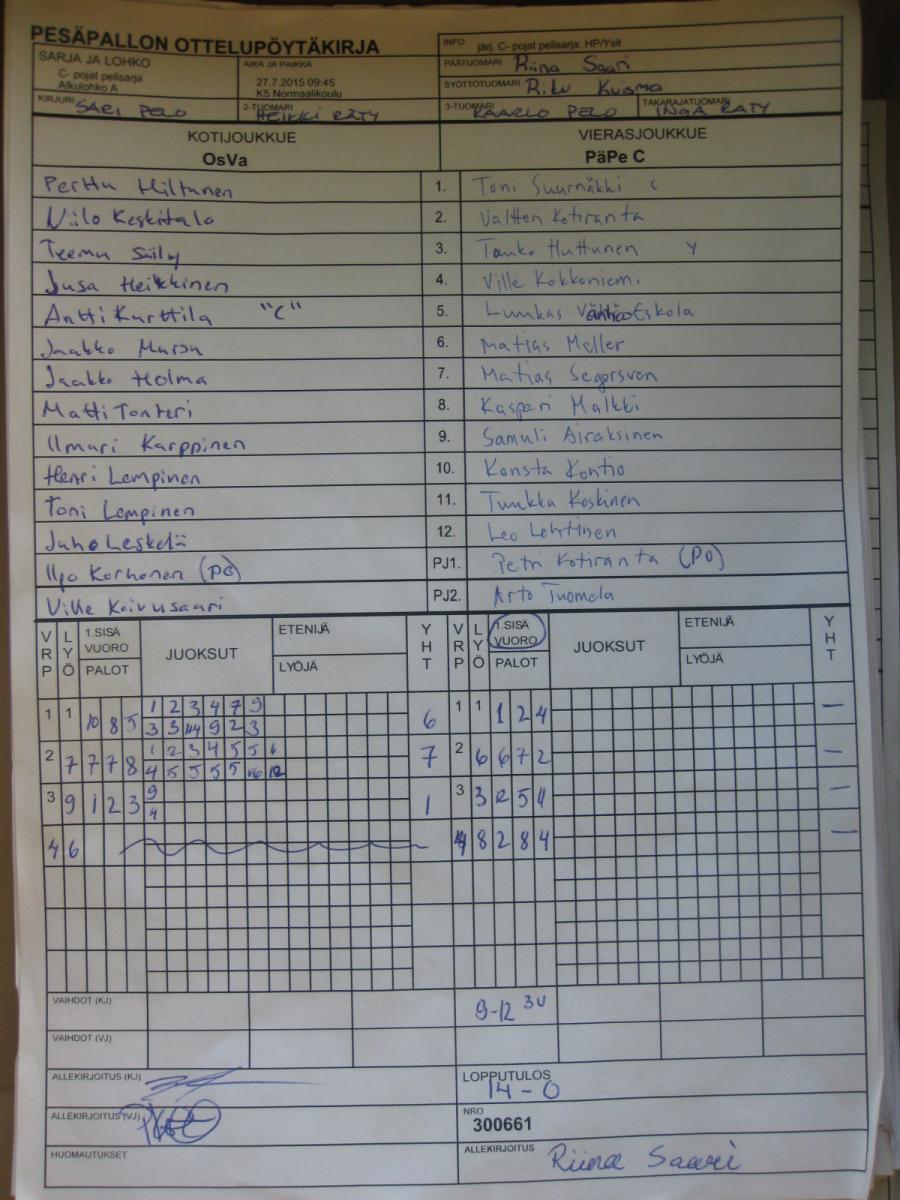 PESÄPALLON OTTELUPÖYTÄKIRJA
INFO järj. C- pojat pelisarja: HP/Ysit
SARJA JA LOHKO
C- pojat pelisarja
Alkulohko A
AIKA JA PAIKKA
27.7.2015 09:45
K5 Normaalikoulu
PÄÄTUOMARI Riina Saari
SYÖTTÖTUOMARI Riku Kuisma
KIRJURI SARI PELO
2-TUOMARI HEIKKI RÄTY
3-TUOMARI KAARLO PELO
TAKARAJATUOMARI INGA RÄTY
KOTIJOUKKUE VIERASJOUKKUE
OsVa PäPe C
Perttu Hiltunen 1. Toni Suurnäkki C
Niilo Keskitalo 2. Valtteri Kotiranta
Teemu Säily 3. Huttunen Y
Jusa Heikkinen 4. Ville Kokkoniemi
Antti Kurttila "C" 5. Eskola
Jaakko 6. Matias Meller
Jaakko Holma 7. Matias
Matti Tonteri 8. Kasperi Malkki
Ilmari Karppinen 9. Samuli Airaksinen
Henri Lempinen 10. Konsta Kontio
Toni Lempinen 11. Tuukka Koskinen
Juho Leskelä 12. Leo Lehtinen
Ilpo Korhonen (PO) PJ1. Petri Kotiranta (PO)
Ville Koivusaari PJ2. Arto Tuomela
VRP LYÖ 1.SISÄ VUORO PALOT JUOKSUT ETENIJÄ LYÖJÄ YHT VRP LYÖ 1.SISÄ VUORO PALOT JUOKSUT ETENIJÄ LYÖJÄ YHT
1 2 3 4 7 9
1 1 10 8 5 3 3 9 2 3 6 1 1 1 2 4 —
1 2 3 4 5 5 6
2 7 7 7 8 4 5 5 5 5 12 7 2 6 6 7 2 —
9
3 9 1 2 3 4 1 3 3 12 5 4 —
4 6 4 8 2 8 4 —
VAIHDOT (KJ) 9-12 3V
VAIHDOT (VJ)
ALLEKIRJOITUS (KJ)
LOPPUTULOS
14-0
ALLEKIRJOITUS (VJ)
NRO
300661
HUOMAUTUKSET
ALLEKIRJOITUS Riina Saari